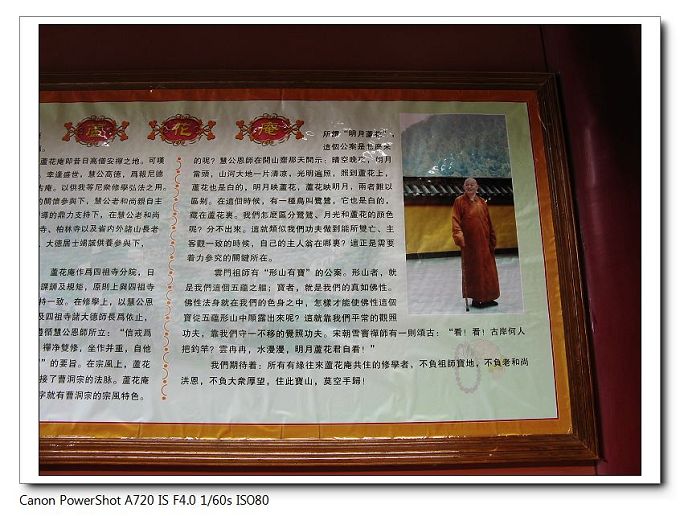 蘆 花 庵
蘆花庵即昔日高僧安禪之地。可嘆
幸逢盛世，慧公高德，爲報尼德
古庵。以供我等尼衆修學弘法之用。
的關懷參與下，慧公老和尚親自主
導的鼎力支持下，在慧公老和尚
寺、柏林寺以及省内外諸山長老
、大德居士竭誠供養參與下，
蘆花庵作爲四祖寺分院，日
課誦及規矩，原則上與四祖寺
持一致。在修學上，以慧公恩
及四祖寺諸大德師長爲依止，
遵循慧公恩師所立："信戒爲
禪净雙修，坐作并重，自他
"的要旨。在宗風上，蘆花
接了曹洞宗的法脉。蘆花庵
字就有曹洞宗的宗風特色。
所謂"明月蘆花"，
這個公案是也麽來
的呢？慧公恩師在開山齋那天開示：晴空晚夜，明月
當頭，山河大地一片清凉，光明遍照。照到蘆花上，
蘆花也是白的，明月映蘆花，蘆花映明月，兩者難以
區别。在這個時候，有一種鳥叫鷺鷥，它也是白的，
藏在蘆花裏。我們怎麽區分鷺鷥、月光和蘆花的顔色
呢？分不出來。這就類似我們功夫做到能所雙亡、主
客觀一致的時候，自己的主人翁在哪裏？這正是需要
着力參究的關鍵所在。
雲門祖師有"形山有寶"的公案。形山者，就
是我們這個五蘊之軀；寶者，就是我們的真如佛性。
佛性法身就在我們的色身之中，怎樣才能使佛性這個
寶從五蘊形山中顯露出來呢？這就靠我們平常的觀照
功夫，靠我們守一不移的覺照功夫。宋朝雪竇禪師有一則頌古："看！看！古岸何人
把釣竿？雲冉冉，水漫漫，明月蘆花君自看！"
我們期待着：所有有緣往來蘆花庵共住的修學者，不負祖師寶地，不負老和尚
洪恩，不負大衆厚望，住此寶山，莫空手歸！
Canon PowerShot A720 IS F4.0 1/60s ISO80